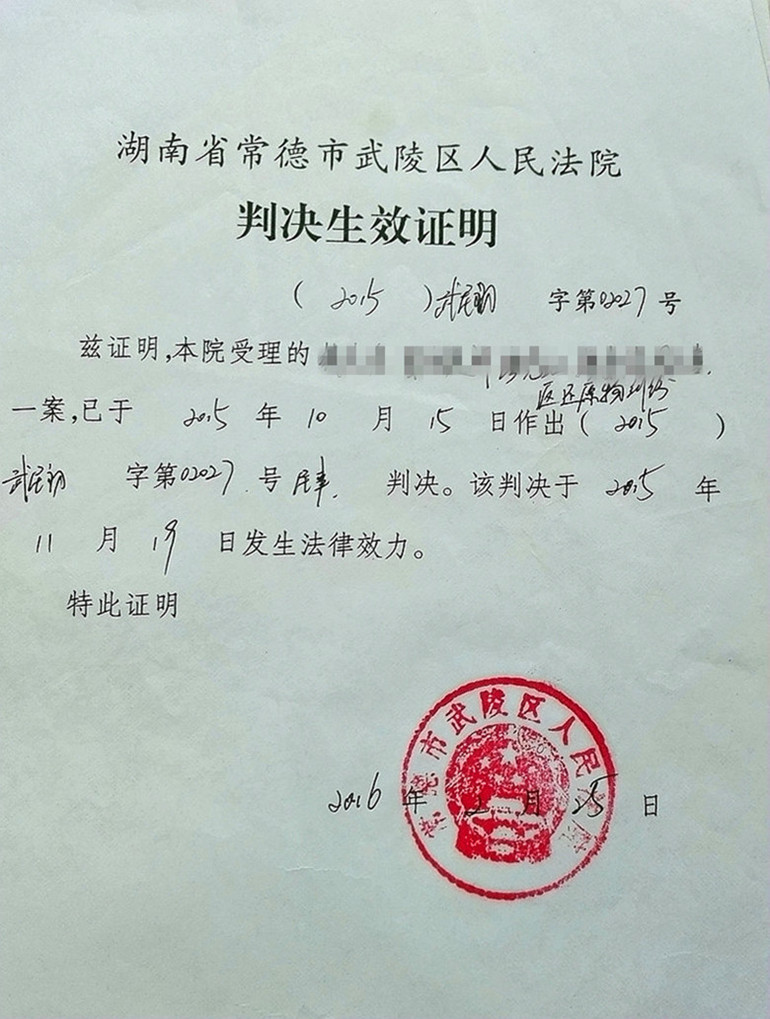 湖南省常德市武陵区人民法院
判决生效证明
(2015)武民初字第02027号
兹证明,本院受理的
返还原物纠纷
一案,已于2015年10月15日作出(2015)
武民初字第02027号民事判决。该判决于2015年
11月19日发生法律效力。
特此证明
常德市武陵区人民法院
2016年2月25日